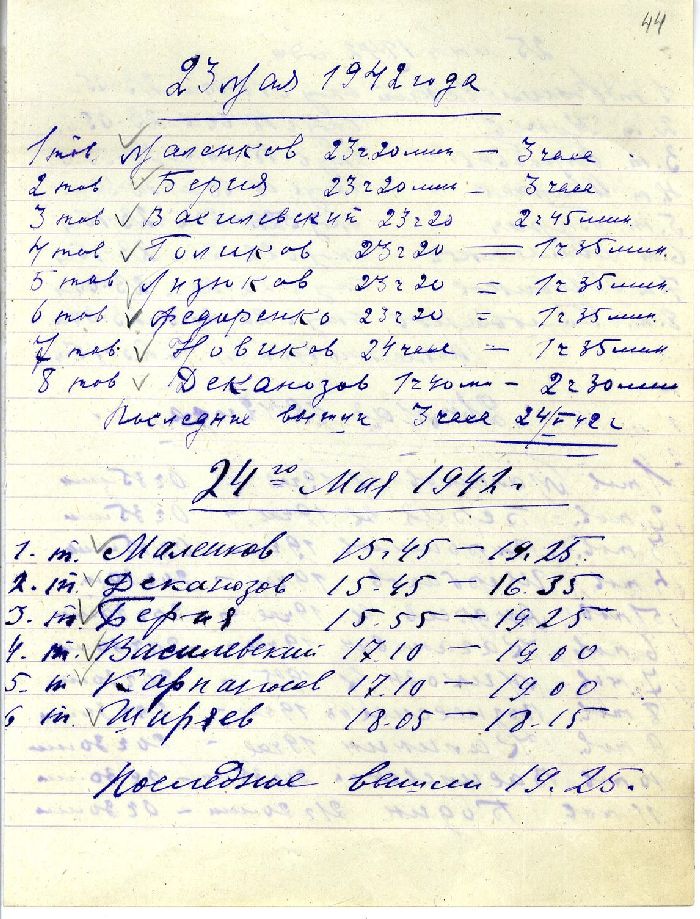 44
23 Мая 1942 года
1 тов. Маленков 23ч20мин – 3 часа
2 тов Берия 23ч20мин – 3 часа
3 тов Василевский 23ч20 2ч45мин
4 тов Голиков 23ч20 = 1ч35мин.
5 тов Лизюков 23ч20 = 1ч35мин.
6 тов Федоренко 23ч20 = 1ч35мин.
7 тов. Новиков 24 часа – 1ч35мин
8 тов Деканозов 1ч40мин – 2ч30мин
Последние вышли 3 часа 24/V 42г
24го Мая 1942г.
1. т. Маленков 15.45 – 19.25.
2. т. Деканозов 15.45 – 16.35
3. т. Берия 15.55 – 19.25
4. т. Василевский 17.10 – 19.00
5. т. 17.10 – 19.00
6 т. Ширяев 18.05 – 18.15
Последние вышли 19.25.